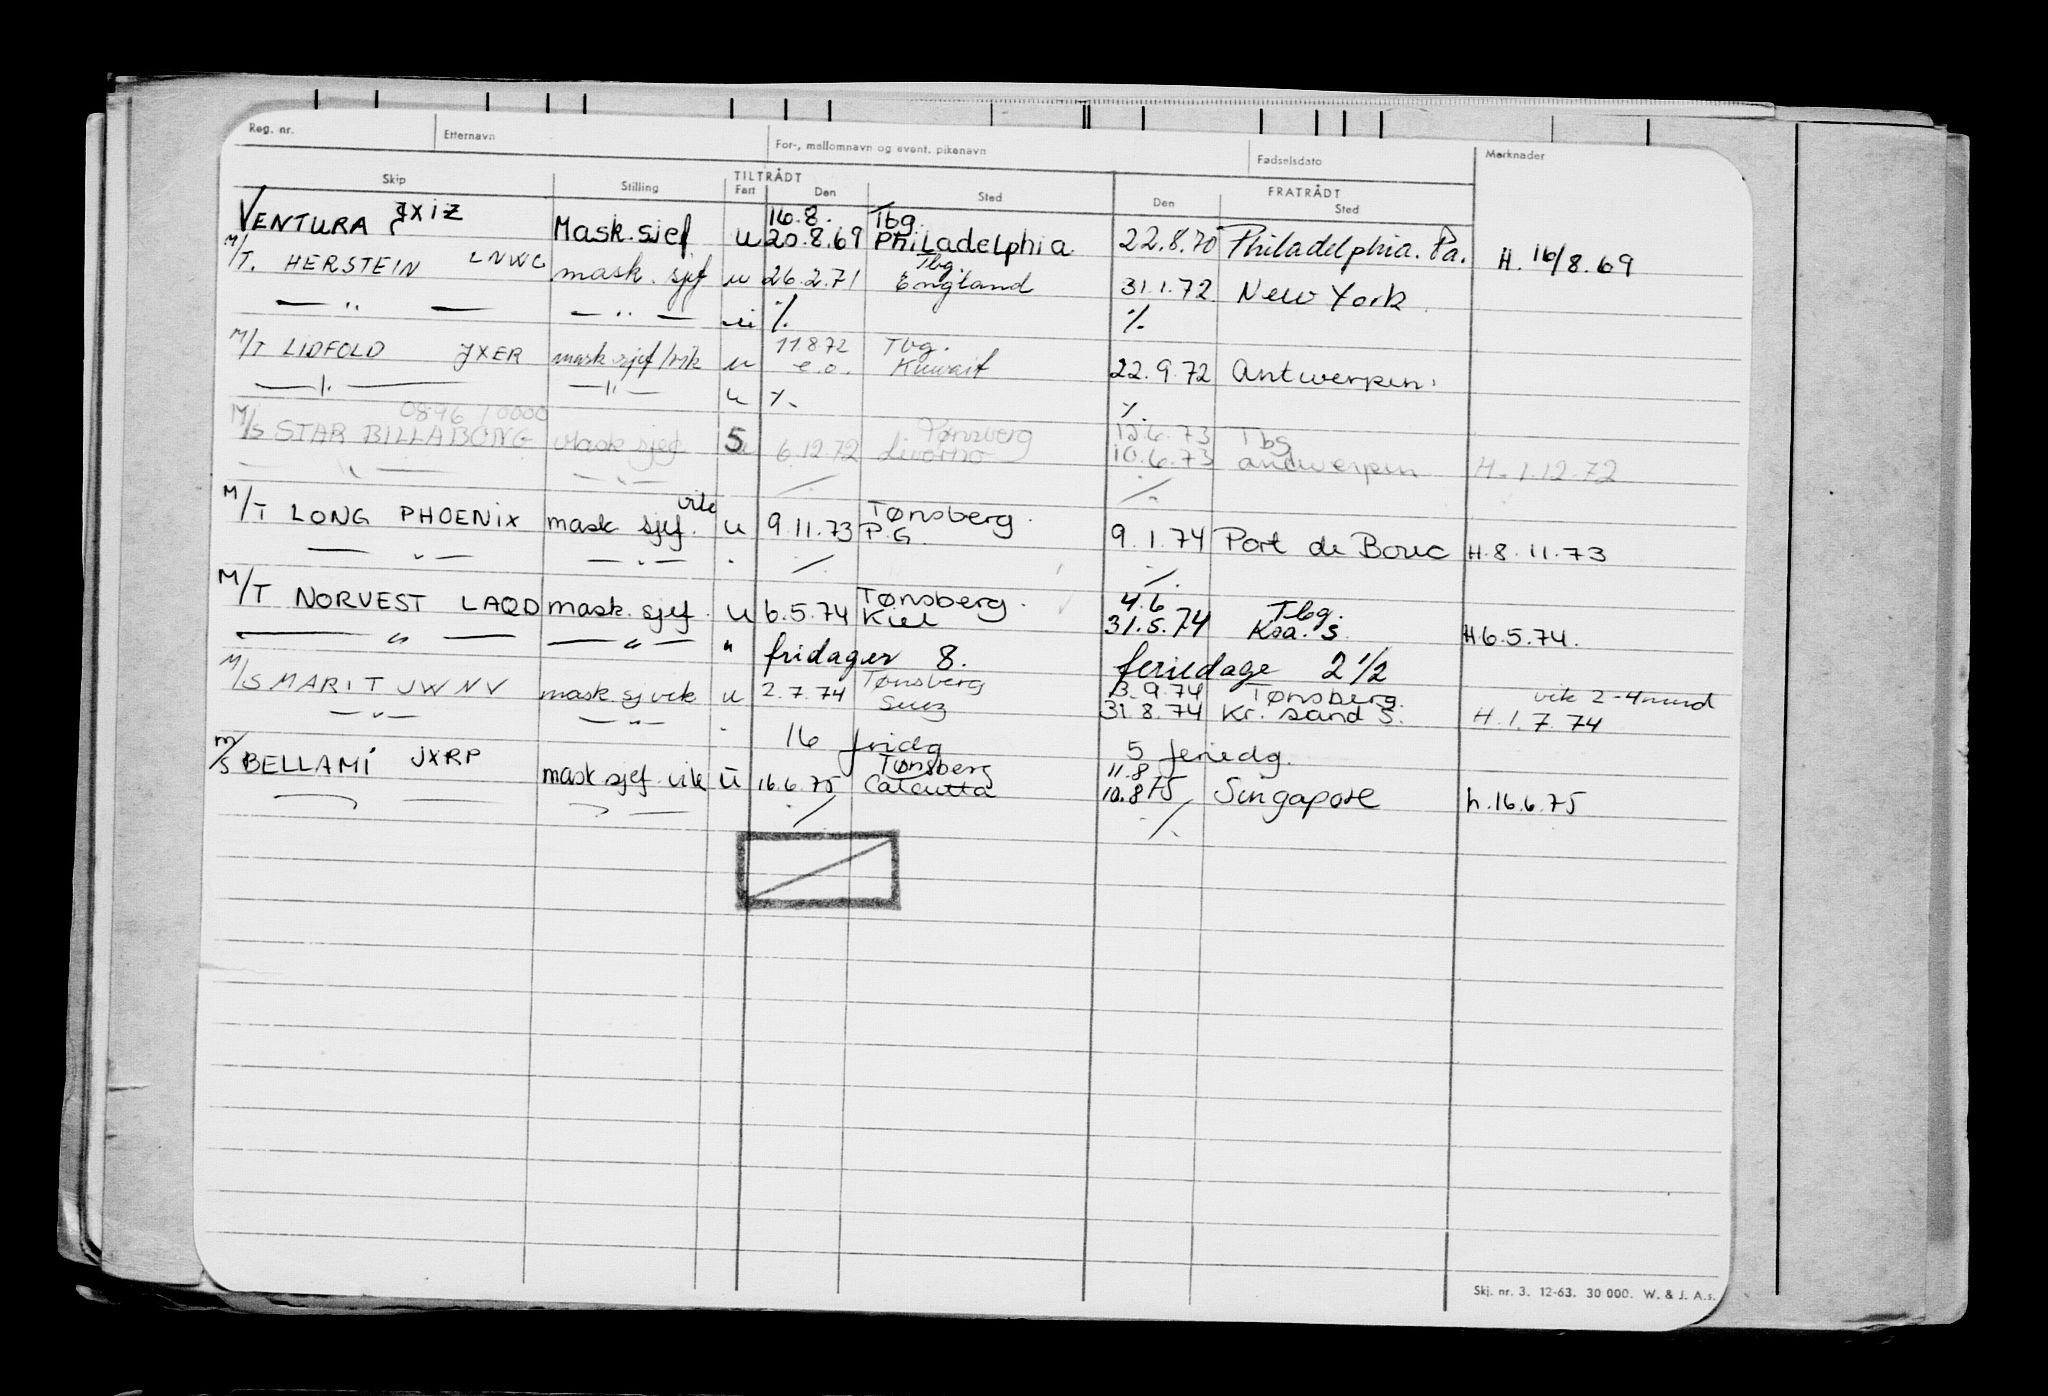 Reg. nr. Etternavn For-, mellomnavn og event. pikenavn Fødselsdato Merknader
TILTRÅDT FRATRÅDT
Skip Stilling Fart Den Sted Den Sted
JXIZ 16.8. Tbg.
VENTURA Mask.sjef u 20.8.69 Philadelphia 22.8.70 Philadelphia. Pa. H. 16/8.69
Tbg.
M/T. HERSTEIN LNWC mask. sjef u 26.2.71 England 31.1.72 New York
— " — — " — u % %
11.8.72 Tbg.
M/T LIDFOLD JXER mask sjef/vik u e.o. Kuwait 22.9.72 Antwerpen.
— " — — " — u % %
0896/0000 Tønsberg 15.6.73 Tbg
M/S STAR BILLABONG Mask sjef S 6.12.72 Livorno 10.6.73 andwerpen H. 1.12.72
— " — — " — % %
vik Tønsberg.
M/T LONG PHOENIX mask sjef. u 9.11.73 P.G. 9.1.74 Port de Bouc H.8.11.73
— " — — " — " % %
Tønsberg. 4.6 Tbg.
M/T NORVEST LAQD mask. sjef. u 6.5.74 Kiel 31.5.74 Krsa. S. H6.5.74.
— " — — " — " fridager 8. feriedage 2 1/2
Tønsberg 3.9.74 Tønsberg. vik 2-4 mnd
M/S MARIT JWNV mask. sj vik u 2.7.74 Suez 31.8.74 Kr. sand S. H.1.7.74
— " — — " — " 16 fridg 5 feriedg.
Tønsberg 11.8
M/S BELLAMI JXRP mask sjef vik u 16.6.75 Calcutta 10.8.75 Singapore h.16.6.75
— " — — " — % %
Skj. nr. 3. 12-63. 30 000. W. & J. A.s.